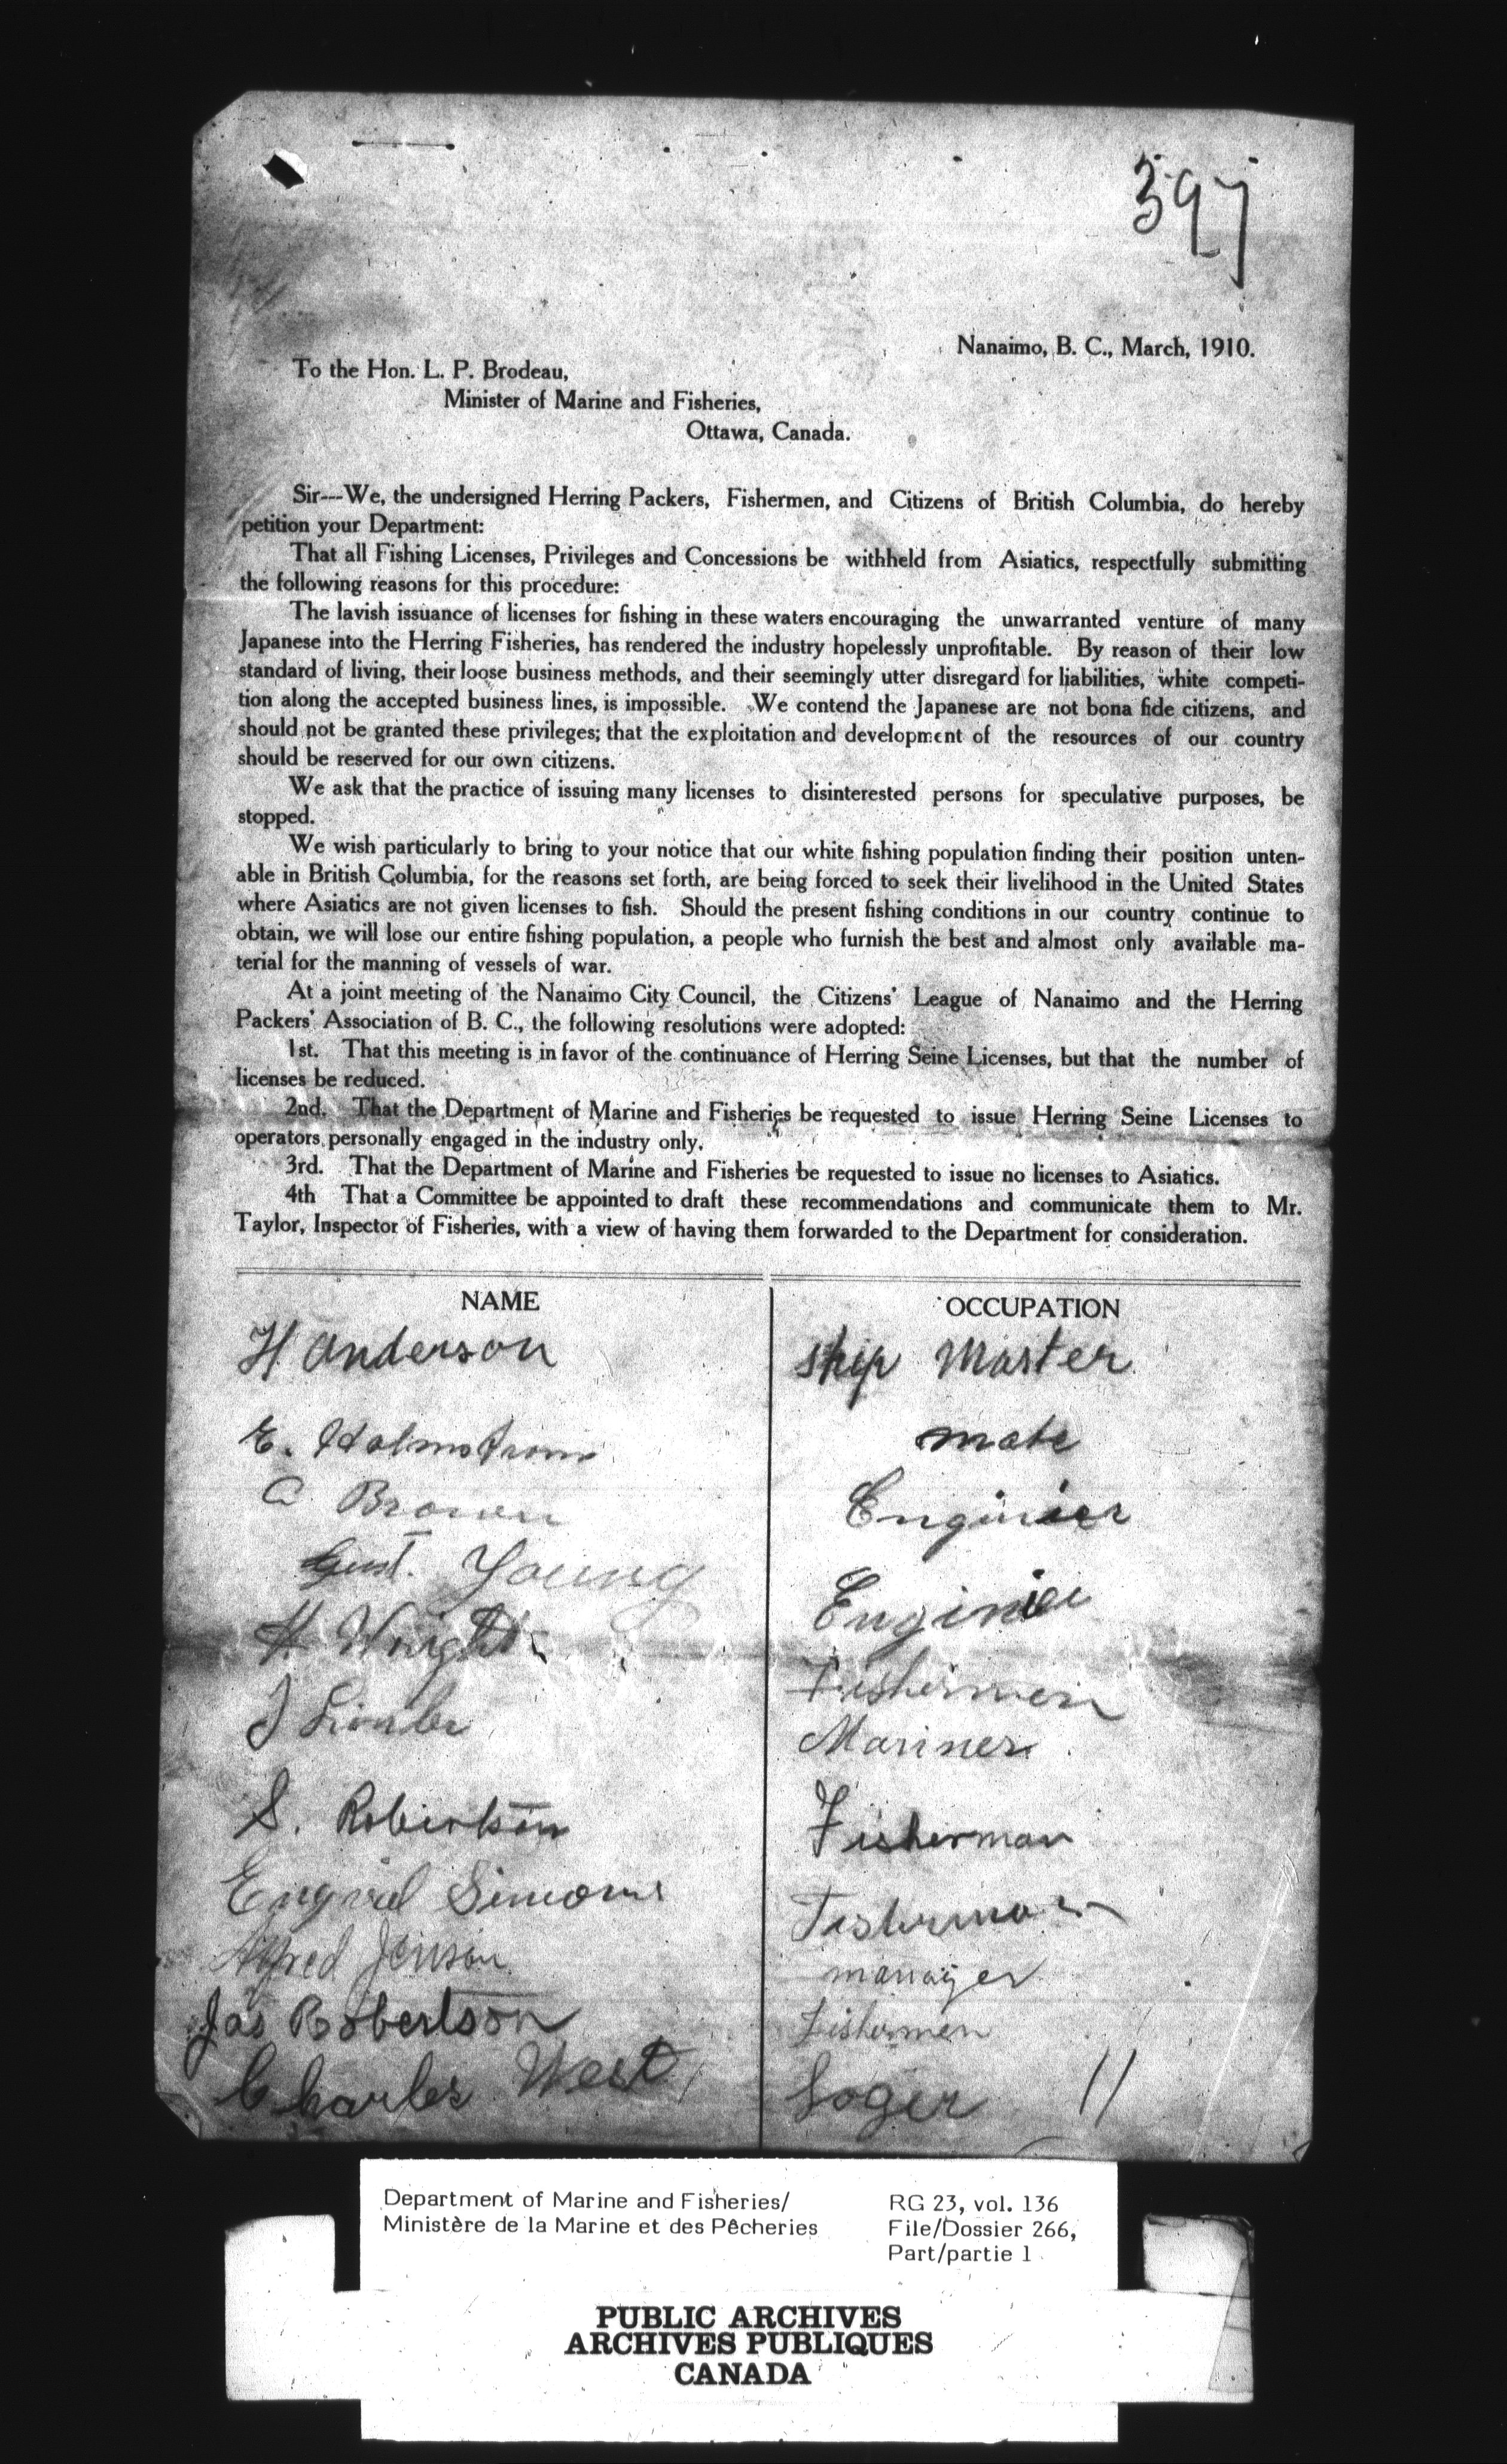 397
Nanaimo, B. C., March, 1910.
To the Hon. L. P. Brodeau,
Minister of Marine and Fisheries,
Ottawa, Canada.
Sir---We, the undersigned Herring Packers, Fishermen, and Citizens of British Columbia, do hereby
petition your Department:
That all Fishing Licenses, Privileges and Concessions be withheld from Asiatics, respectfully submitting
the following reasons for this procedure:
The lavish issuance of licenses for fishing in these waters encouraging the unwarranted venture of many
Japanese into the Herring Fisheries, has rendered the industry hopelessly unprofitable. By reason of their low
standard of living, their loose business methods, and their seemingly utter disregard for liabilities, white competi-
tion along the accepted business lines, is impossible. We contend the Japanese are not bona fide citizens, and
should not be granted these privileges; that the exploitation and development of the resources of our country
should be reserved for our own citizens.
We ask that the practice of issuing many licenses to disinterested persons for speculative purposes, be
stopped.
We wish particularly to bring to your notice that our white fishing population finding their position unten-
able in British Columbia, for the reasons set forth, are being forced to seek their livelihood in the United States
where Asiatics are not given licenses to fish. Should the present fishing conditions in our country continue to
obtain, we will lose our entire fishing population, a people who furnish the best and almost only available ma-
terial for the manning of vessels of war.
At a joint meeting of the Nanaimo City Council, the Citizens' League of Nanaimo and the Herring
Packers' Association of B. C., the following resolutions were adopted:
1st. That this meeting is in favor of the continuance of Herring Seine Licenses, but that the number of
licenses be reduced.
2nd. That the Department of Marine and Fisheries be requested to issue Herring Seine Licenses to
operators personally engaged in the industry only.
3rd. That the Department of Marine and Fisheries be requested to issue no licenses to Asiatics.
4th That a Committee be appointed to draft these recommendations and communicate them to Mr.
Taylor, Inspector of Fisheries, with a view of having them forwarded to the Department for consideration.
NAME OCCUPATION
H Anderson ship Master
E. Holmstrom mate
C Brown Enginier
Gust. Young
H Wright Fishermen
J Mariner
S. Robertson Fisherman
Simons Fisherman
Alfred Jenson manager
Jas Robertson Fishermen
Charles West Loger 11
Department of Marine and Fisheries/ RG 23, vol. 136
Ministère de la Marine et des Pêcheries File/Dossier 266,
Part/partie 1
PUBLIC ARCHIVES
ARCHIVES PUBLIQUES
CANADA